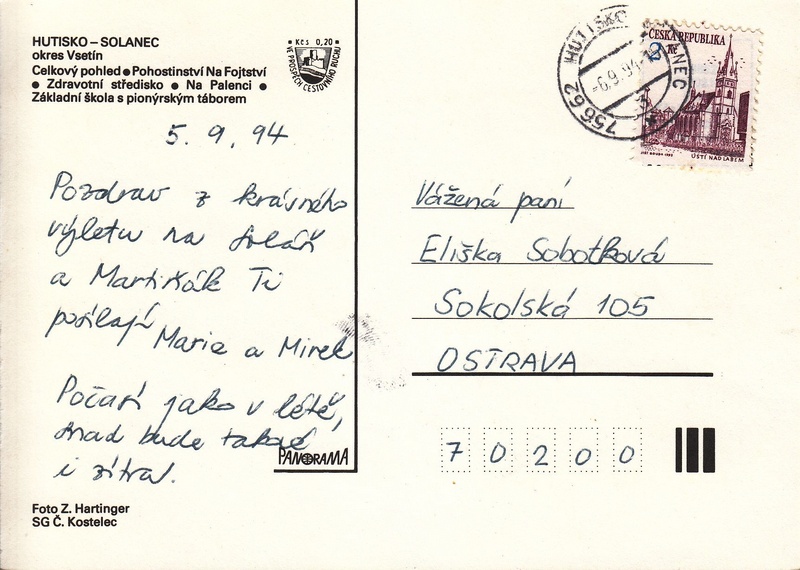 HUTISKO – SOLANEC
okres Vsetín
Celkový pohled ● Pohostinství Na Fojtství
● Zdravotní středisko ● Na Palenci ●
Základní škola s pionýrským táborem
● Kčs 0,20 ●
VE PROSPĚCH CESTOVNÍHO RUCHU
5. 9. 94
Pozdrav z krásného
výletu na Soláň
a Martiňák Ti
posílají
Marie a Mirek
Počasí jako v létě,
snad bude takové
i zítra.
PANORAMA
Foto Z. Hartinger
SG Č. Kostelec
75662 HUTISKO
-6.9.94
ČESKÁ REPUBLIKA
2 Kč
ÚSTÍ NAD LABEM
Vážená paní
Eliška Sobotková
Sokolská 105
OSTRAVA
70200